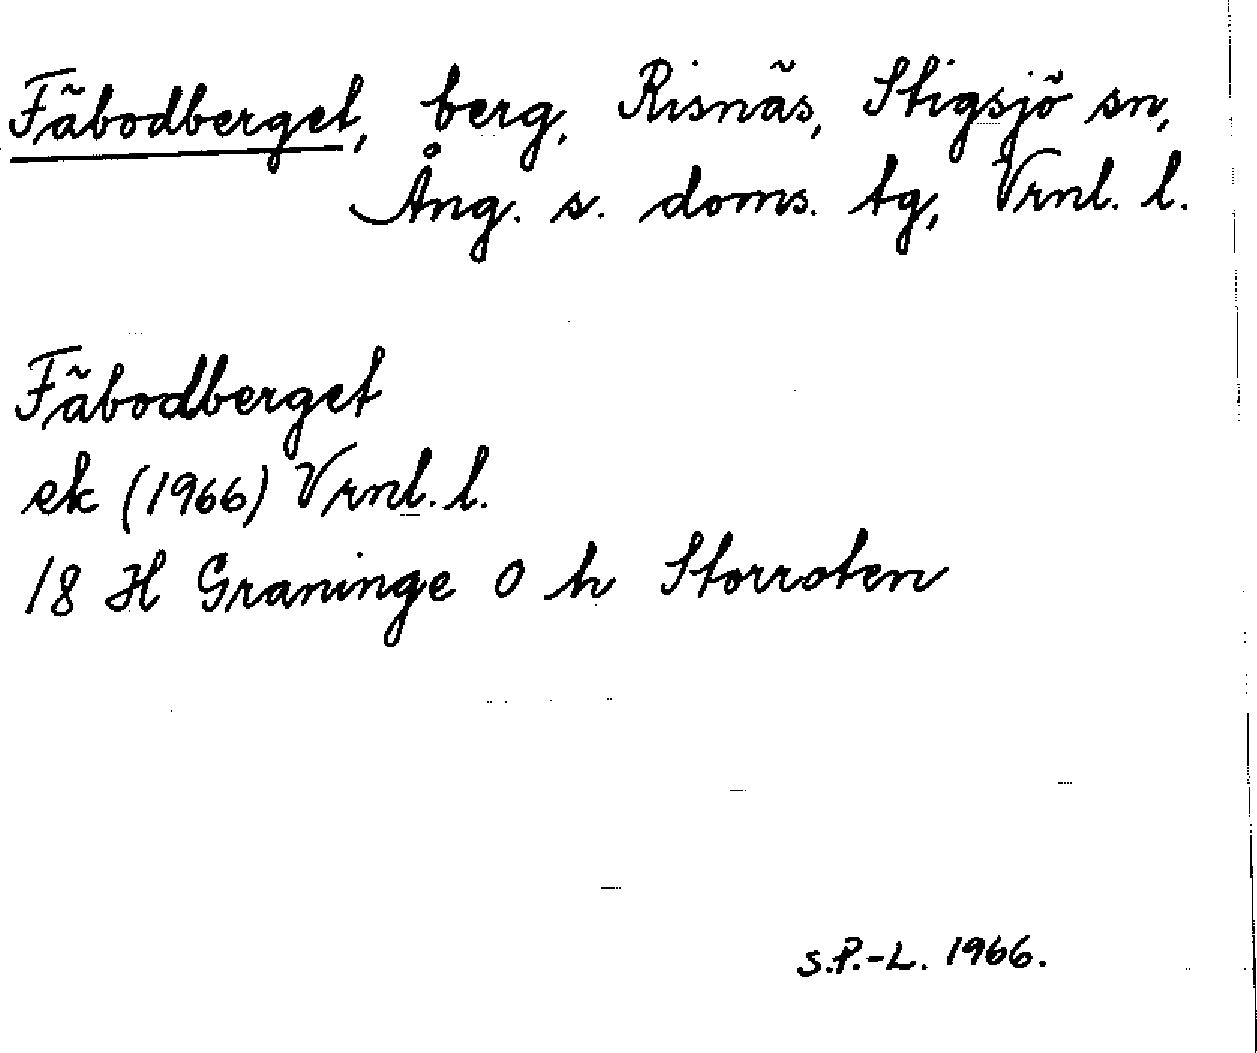 Fäbodberget, berg, Risnäs, Stigsjö sn,
Ång. s. doms. tg, Vrnl. l.
Fäbodberget
ek (1966) Vrnl. l.
18 H Graninge O h Storroten
S.P.-L. 1966.